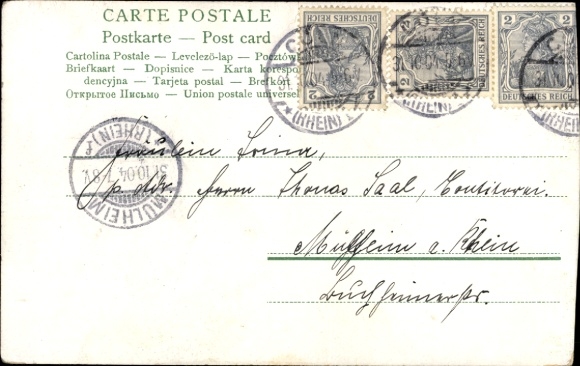 CARTE POSTALE
Postkarte — Post card
Cartolina Postale — Levelező-lap — Pocztów
Briefkaart — Dopisnice — Karta korespo
dencyjna — Tarjeta postal — Brefkort
Открытое Письмо — Union postale universel
DEUTSCHES REICH
2 2
DEUTSCHES REICH
2
DEUTSCHES REICH
2
(RHEIN)
31.10.04
(RHEIN)
(RHEIN)
MÜLHEIM (RHEIN)
31.10.04 7-8V.
Fräulein
p. Adr. Herrn Thomas Saal, Conditorei.
Mülheim a. Rhein
Buchheimerstr.